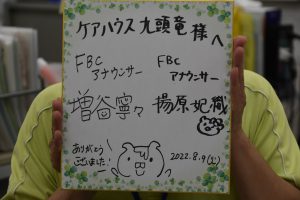 ケアハウス九頭竜様へ
FBC アナウンサー
増谷寧々
FBC アナウンサー
揚原妃織
ありがとうございました!
2022.8.9(土)